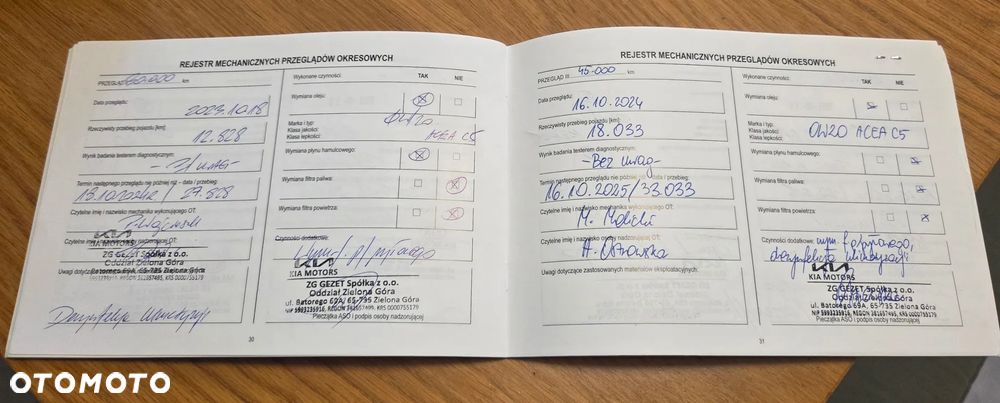 REJESTR MECHANICZNYCH PRZEGLĄDÓW OKRESOWYCH
PRZEGLĄD 30.000 km
Data przeglądu:
2023.10.18
Rzeczywisty przebieg pojazdu [km]:
12.828
Wynik badania testerem diagnostycznym:
Termin następnego przeglądu nie później niż - data / przebieg:
/ 27.828
Czytelne imię i nazwisko mechanika wykonującego OT:
Czytelne imię i nazwisko osoby nadzorującej OT:
KIA MOTORS
ZG GEZET Spółka z o.o.
Oddział Zielona Góra
ul. Batorego 69A, 65-735 Zielona Góra
NIP 5993235916, REGON 381657495, KRS 0000755179
Uwagi dotyczące
Dezynfekcja klimatyzacji
Wykonane czynności: TAK NIE
Wymiana oleju:
Marka i typ: 0W20
Klasa jakości: ACEA C5
Klasa lepkości:
Wymiana płynu hamulcowego:
Wymiana filtra paliwa:
Wymiana filtra powietrza:
Czynności dodatkowe:
KIA MOTORS
ZG GEZET Spółka z o.o.
Oddział Zielona Góra
ul. Batorego 69A, 65-735 Zielona Góra
NIP 5993235916, REGON 381657495, KRS 0000755179
Pieczątka ASO i podpis osoby nadzorującej
30
REJESTR MECHANICZNYCH PRZEGLĄDÓW OKRESOWYCH
PRZEGLĄD III: 45-000 km
Data przeglądu:
16.10.2024
Rzeczywisty przebieg pojazdu [km]:
18.033
Wynik badania testerem diagnostycznym:
- Bez uwag -
Termin następnego przeglądu nie później niż - data / przebieg:
16.10.2025/33.033
Czytelne imię i nazwisko mechanika wykonującego OT:
M.
Czytelne imię i nazwisko osoby nadzorującej OT:
A. Ostrowska
Uwagi dotyczące zastosowanych materiałów eksploatacyjnych:
Wykonane czynności: TAK NIE
Wymiana oleju:
Marka i typ:
Klasa jakości: 0W20 ACEA C5
Klasa lepkości:
Wymiana płynu hamulcowego:
Wymiana filtra paliwa:
Wymiana filtra powietrza:
Czynności dodatkowe: wym. f. pyłkowego,
dezynfekcja klimatyzacji
KIA MOTORS
ZG GEZET Spółka z o.o.
Oddział Zielona Góra
ul. Batorego 69A, 65-735 Zielona Góra
NIP 5993235916, REGON 381657495, KRS 0000755179
Pieczątka ASO i podpis osoby nadzorującej
31
OTOMOTO